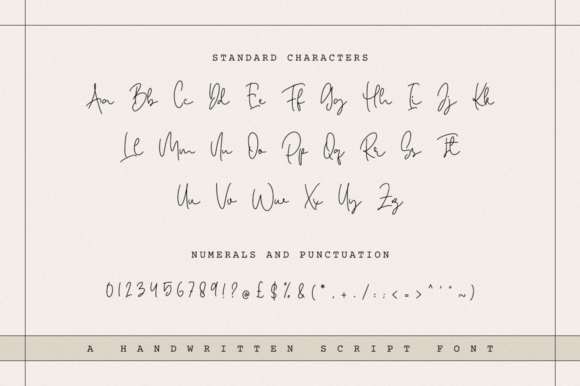 STANDARD CHARACTERS
Aa Bb Cc Dd Ee Ff Gg Hh Ii Jj Kk
Ll Mm Nn Oo Pp Qq Rr Ss Tt
Uu Vv Ww Xx Yy Zz
NUMERALS AND PUNCTUATION
0123456789!?@£$%&(*.+./::<=>^'"~)
A HANDWRITTEN SCRIPT FONT